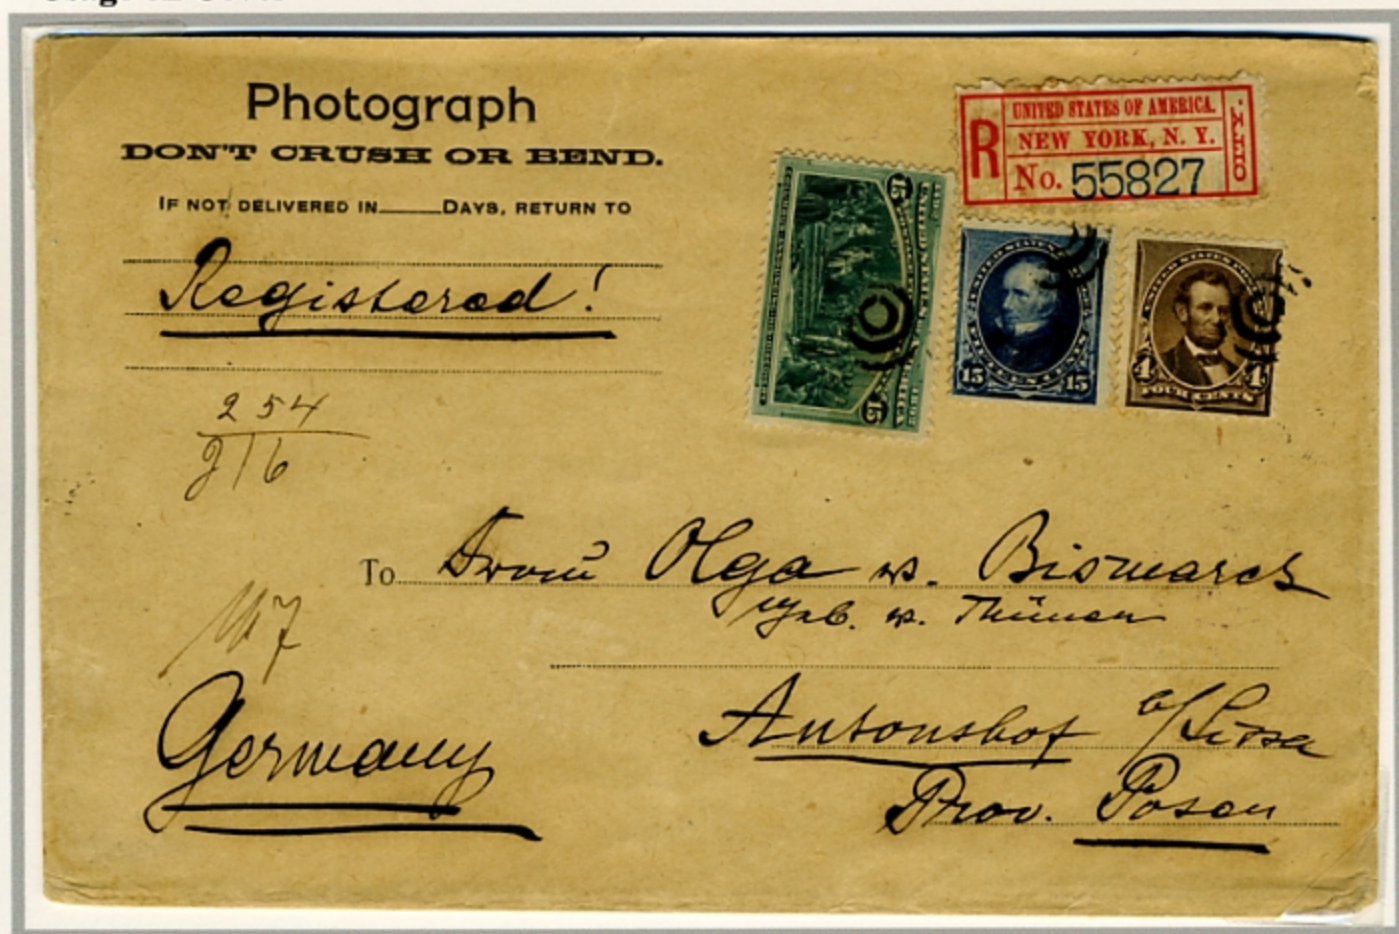 Photograph
DON'T CRUSH OR BEND.
IF NOT DELIVERED IN____DAYS, RETURN TO
Registered!
254
216
UNITED STATES OF AMERICA.
R NEW YORK, N. Y.
No. 55827
15
15
15 15
4 4
FOUR CENTS
To Frau Olga v. Bismarck
geb. v. Thünen
Antonshof b/Lissa
Germany
Prov. Posen